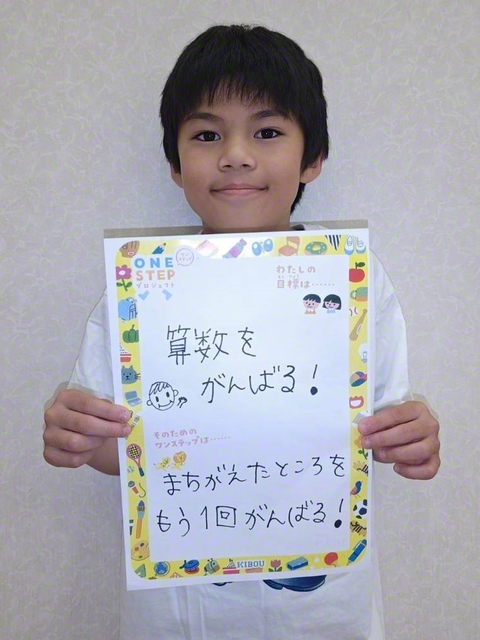 ONE
STEP
プロジェクト
わたしの
目標は……
算数を
がんばる!
そのための
ワンステップは……
まちがえたところを
もう1回がんばる!
KIBOU